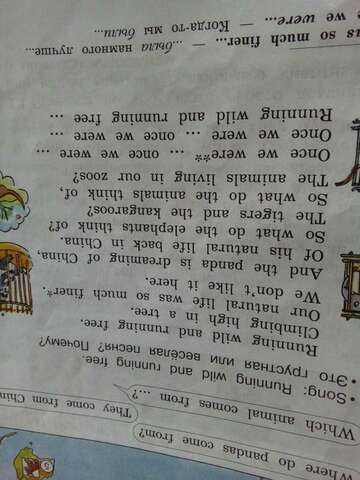 Where do pandas come from?
They come from Chin
Which animal comes from ...?
• Song: Running wild and running free.
• Это грустная или весёлая песня? Почему?
Running wild and running free.
Climbing high in a tree.
Our natural life was so much finer*.
We don't like it here.
And the panda is dreaming of China,
Of his natural life back in China.
So what do the elephants think of?
The tigers and the kangaroos?
So what do the animals think of,
The animals living in our zoos?
Once we were** ... once we were ...
Once we were ... once we were ...
Running wild and running free ...
as so much finer... — ...была намного лучше...
e we were... — Когда-то мы были...